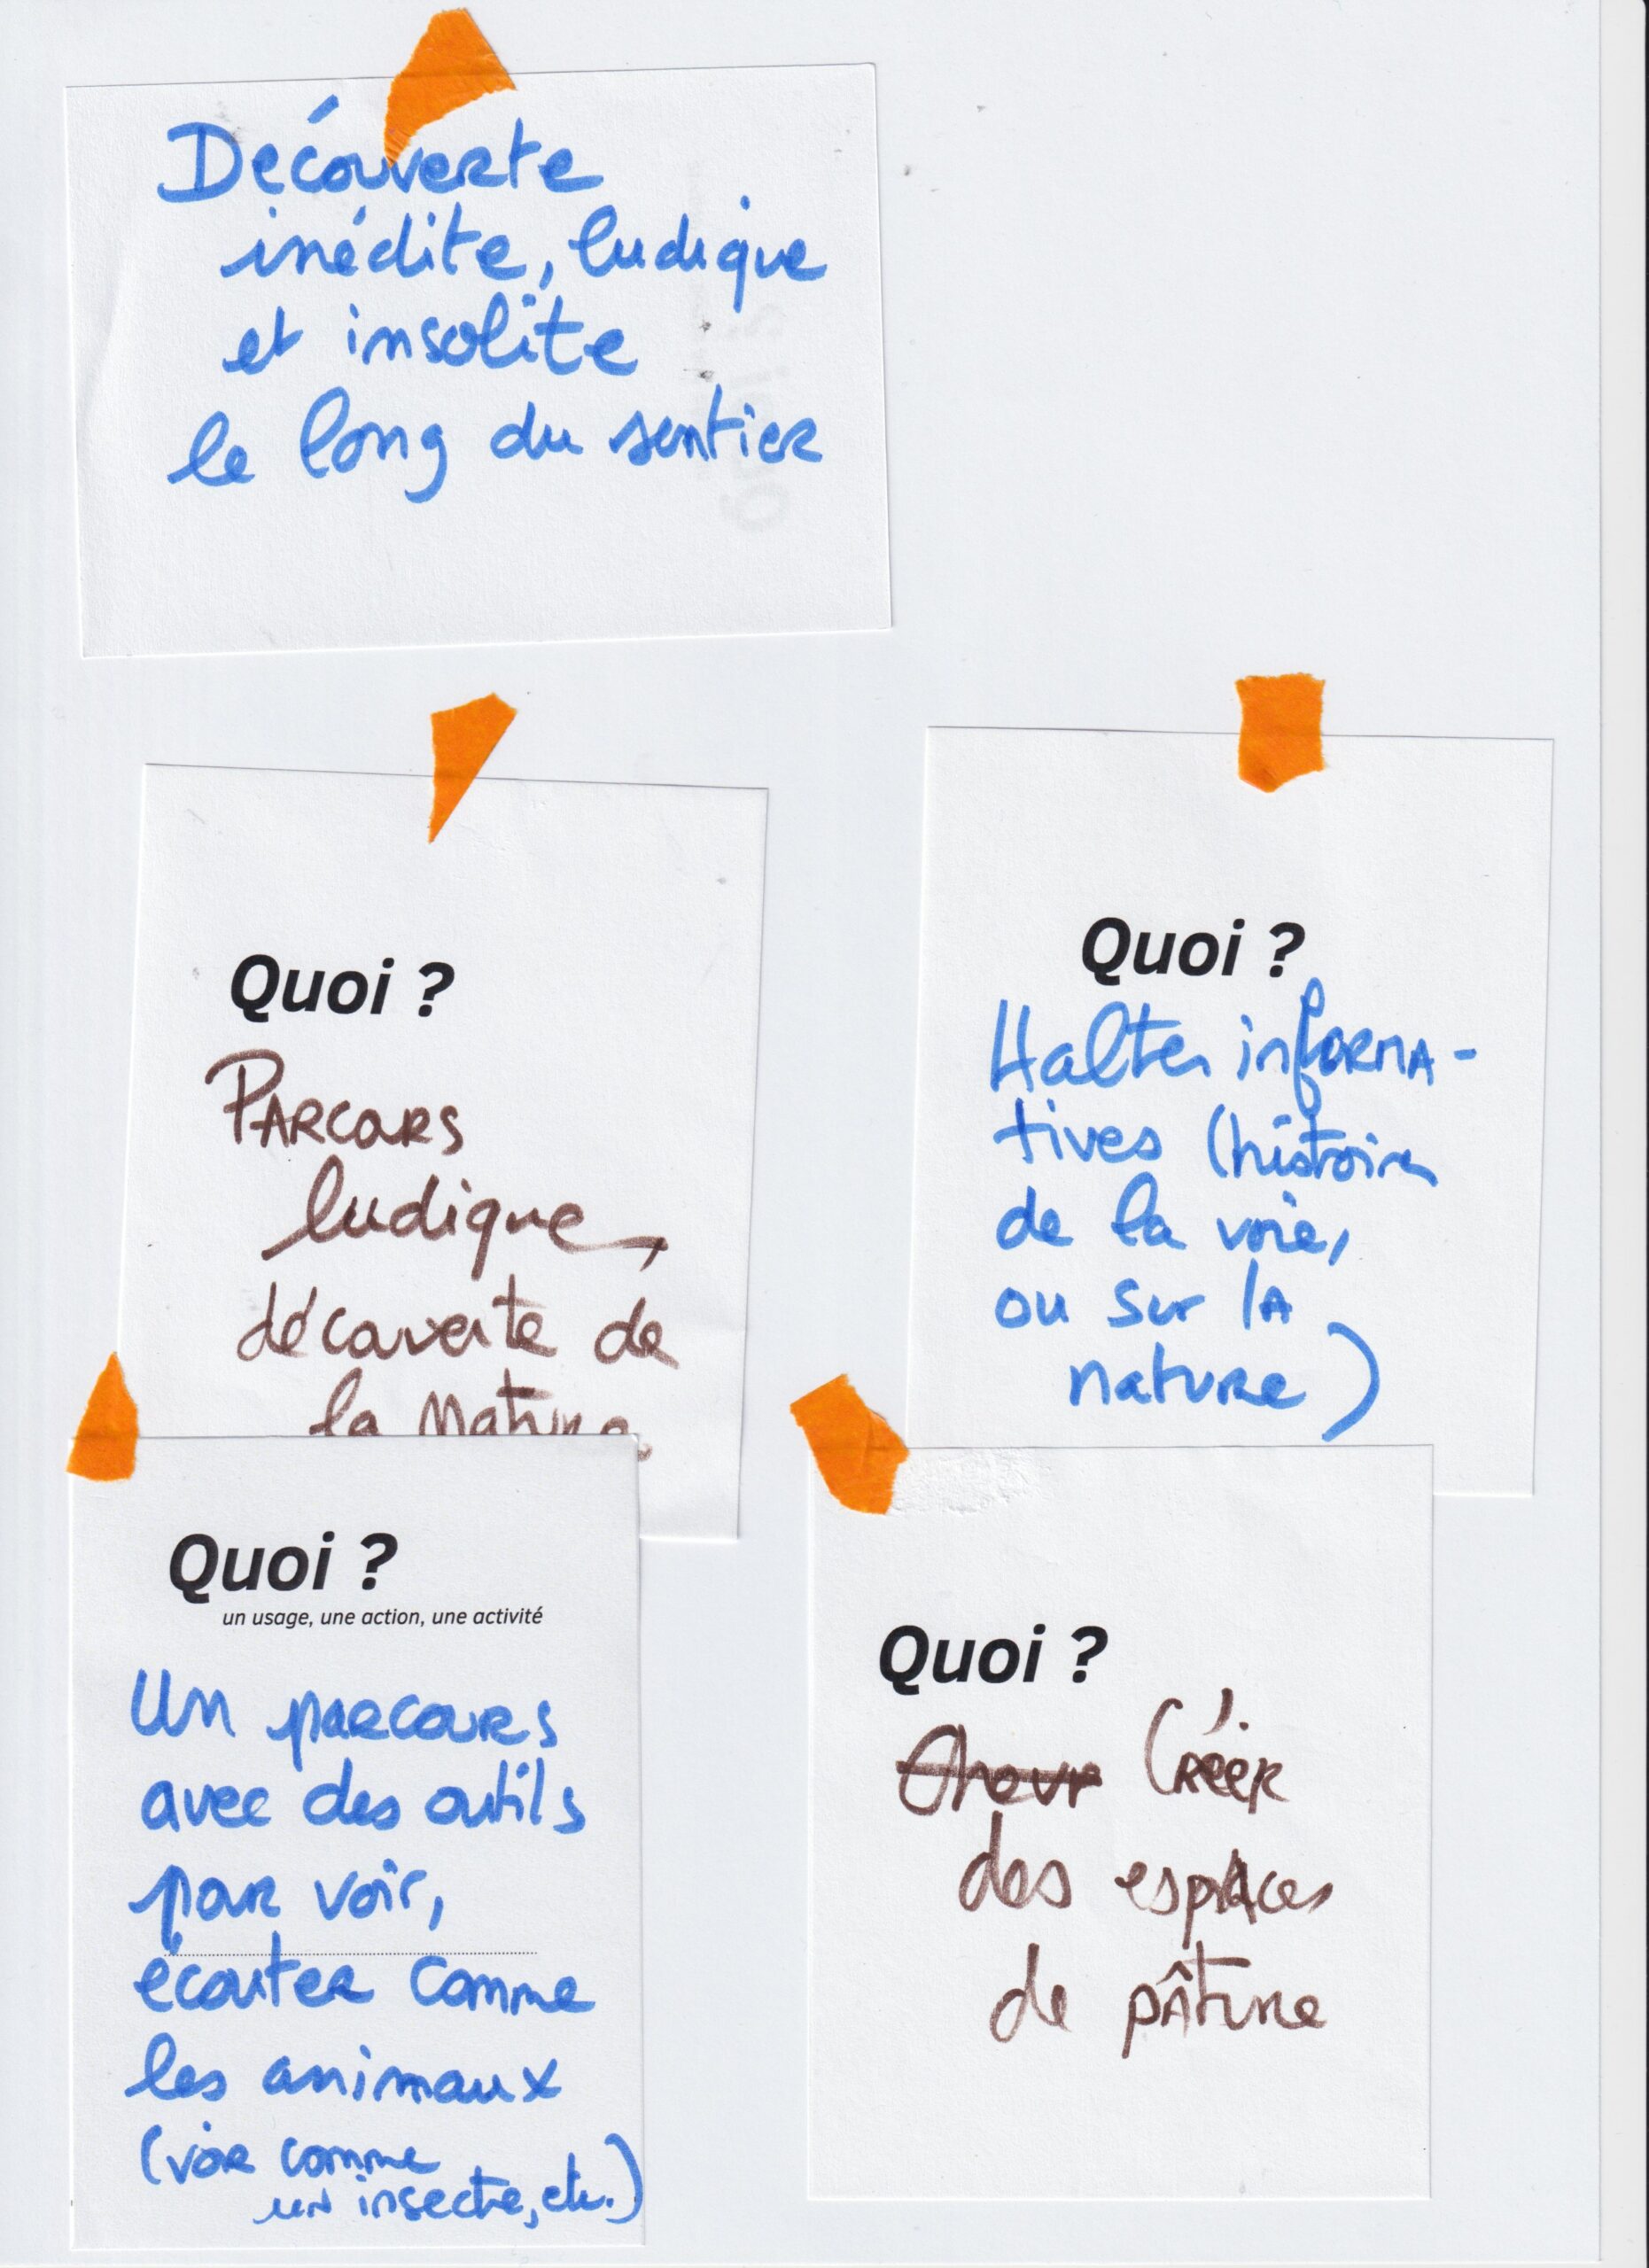 Découverte
inédite, ludique
et insolite
le long du sentier
Quoi ?
Parcours
ludique,
découverte de
la nature
Quoi ?
Haltes informa-
tives (histoires
de la voie,
ou sur la
nature)
Quoi ?
un usage, une action, une activité
Un parcours
avec des outils
pour voir,
écouter comme
les animaux
(voir comme
un insecte, etc.)
Quoi ?
Créer
des espaces
de pâture